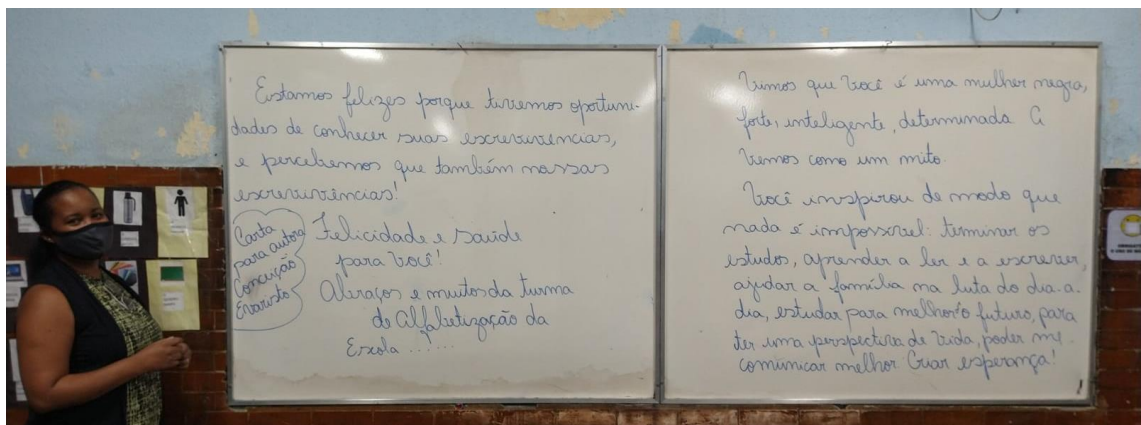 Estamos felizes porque tivemos oportuni-
dades de conhecer suas escrevivências,
e percebemos que também nossas
escrevivências!
Carta
para autora
Conceição
Evaristo
Felicidade e Saúde
para você!
Abraços e muitos da turma
de Alfabetização da
Escola ......
Vimos que você é uma mulher negra,
forte, inteligente, determinada. A
vemos como um mito.
Você inspirou de modo que
nada é impossível: terminar os
estudos, aprender a ler e a escrever,
ajudar a família na luta do dia-a-
dia, estudar para melhor o futuro, para
ter uma perspectiva de vida, poder me
comunicar melhor. Criar esperança!